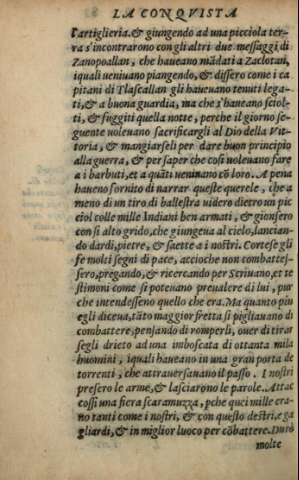 LA CONQVISTA
l'artiglieria. & giungendo ad una picciola ter-
ra s'incontrarono con gli altri due messaggi di
Zanopoallan, che haueano mãdati a Zaclotan,
iquali ueniuano piangendo, & dissero come i ca
pitani di Tlascallan gli haueuano tenuti lega-
ti, & a buona guardia, ma che s'haueano sciol-
ti, & fuggiti quella notte, perche il giorno se-
guente uoleuano sacrificargli al Dio della Vit-
toria, & mangiarseli per dare buon principio
alla guerra, & per saper che cosi uoleuano fare
a i barbuti, et a quãti ueninano cõ loro. A pena
haueno fornito di narrar queste querele, che a
meno di un tiro di ballestra uidero dietro un pic
ciol colle mille Indiani ben armati, & gionsero
con si alto grido, che giungeua al cielo, lancian-
do dardi, pietre, & saette a i nostri. Cortese gli
fe molti segni di pace, accioche non combattes-
sero, pregando, & ricercando per Scriuano, et te
stimoni come si poteuano preualere di lui, pur
che intendesseno quello che era. Ma quanto piu
egli diceua, tãto maggior fretta si pigliauano di
combattere, pensando di romperli, ouer di tirar
segli drieto ad una imboscata di ottanta mila
huomini, iquali haueano in una gran porta de
torrenti, che attrauersauano il passo. I nostri
presero le arme, & lasciarono le parole. Attac
cossi una fiera scaramuzza, pche quei mille era-
no tanti come i nostri, & con questo destri, e ga
gliardi, & in miglior luoco per cõbattere. Durò
molte